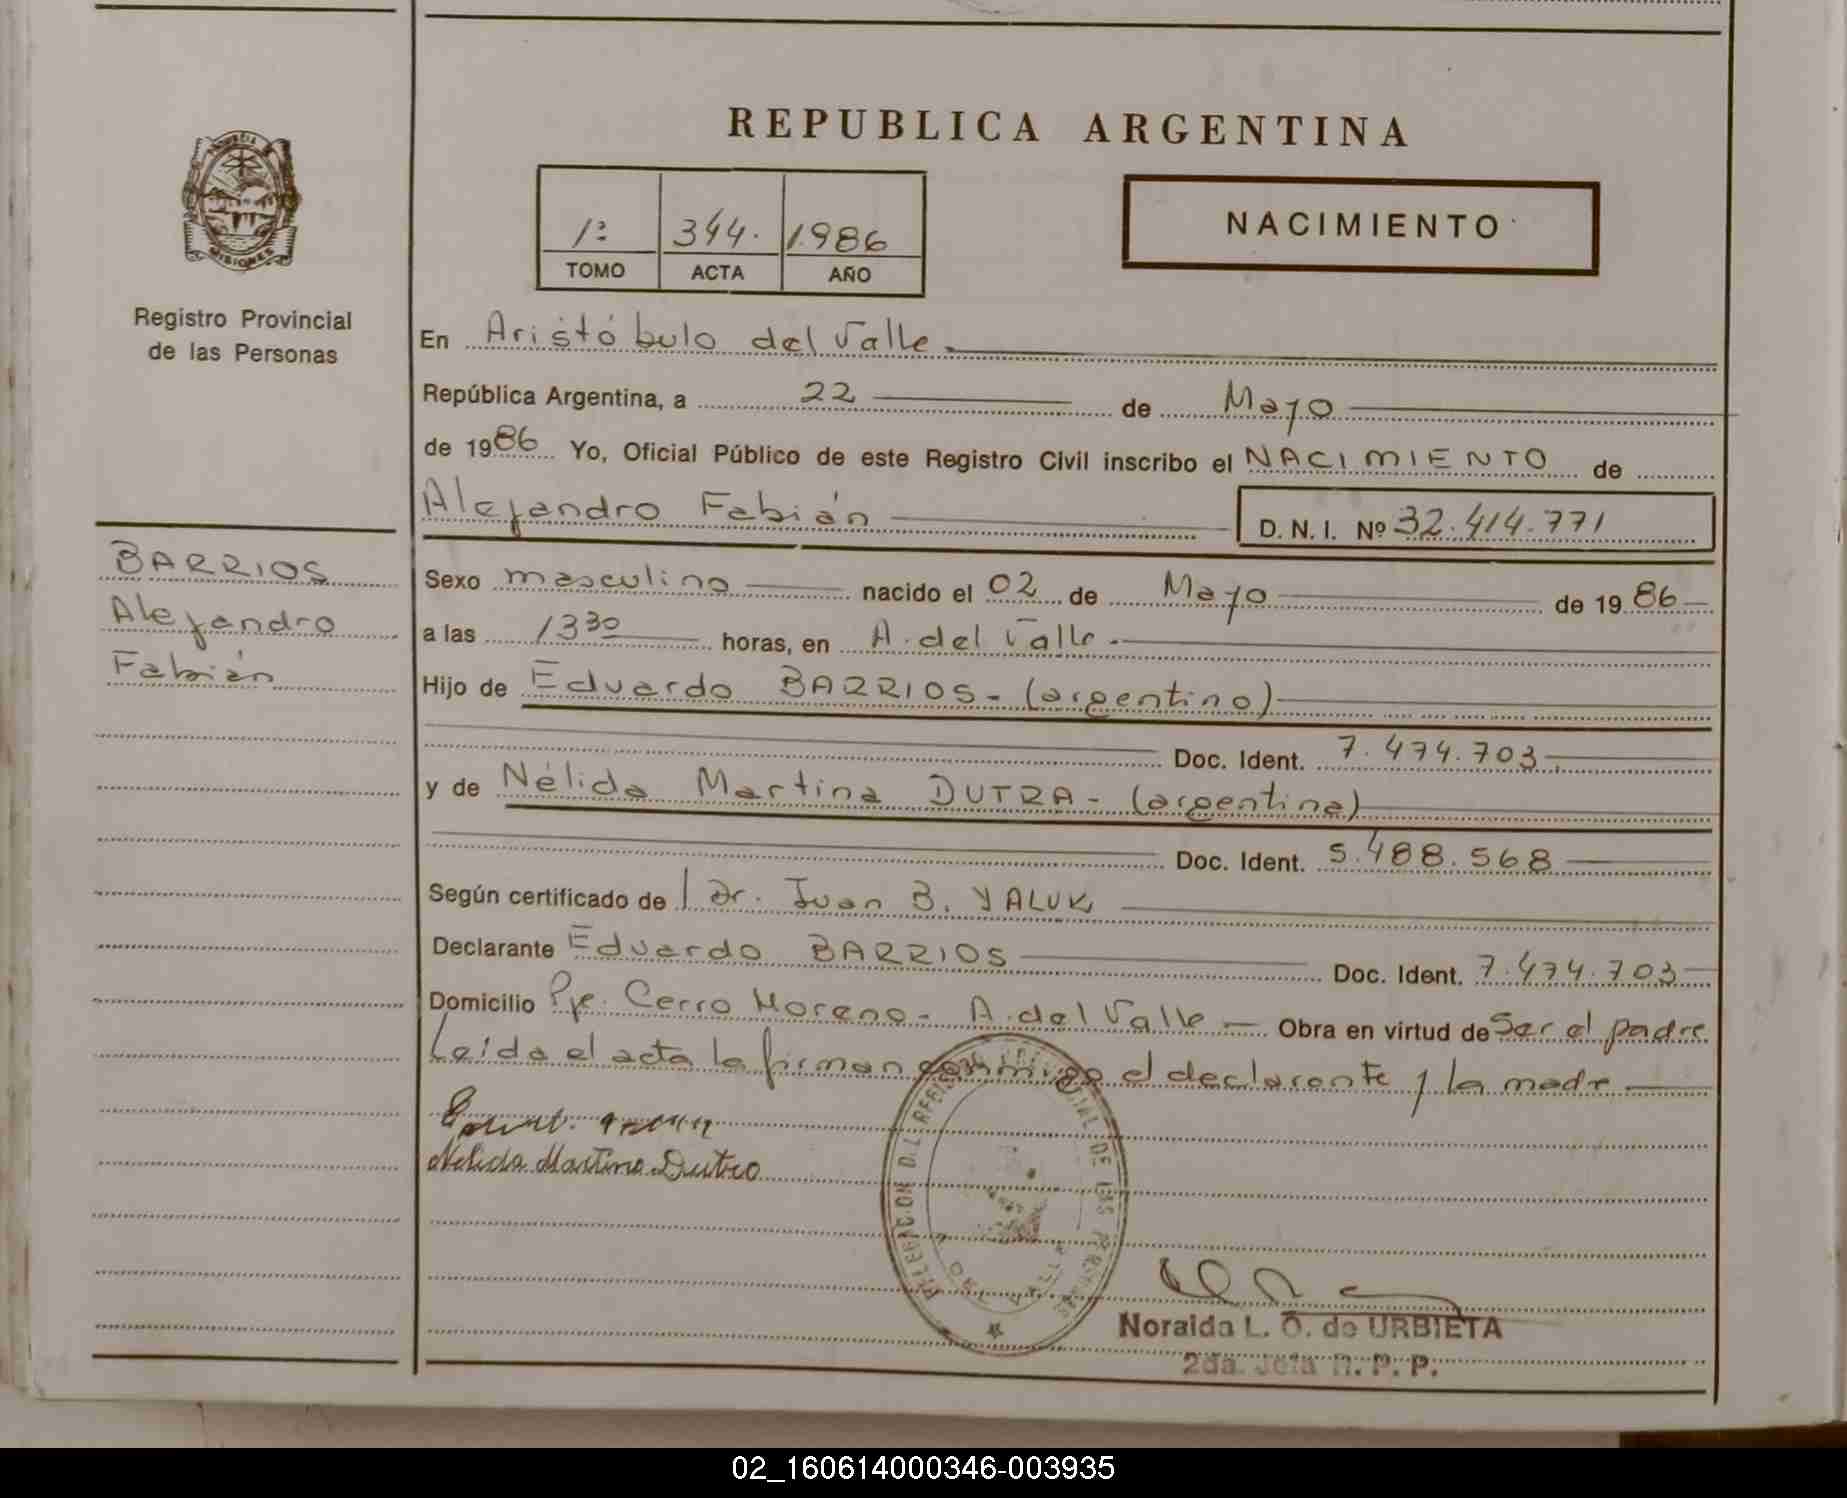 REPUBLICA ARGENTINA
MISIONES
Registro Provincial
de las Personas
1º 344. 1986
TOMO ACTA AÑO
NACIMIENTO
En Aristóbulo del Valle.
República Argentina, a 22 de Mayo
de 1986 Yo, Oficial Público de este Registro Civil inscribo el NACIMIENTO de
Alejandro Fabián D. N. I. Nº 32.414.771
BARRIOS
Alejandro
Fabián
Sexo masculino nacido el 02 de Mayo de 1986
a las 13 30 horas, en A. del Valle.
Hijo de Eduardo BARRIOS - (argentino)
Doc. Ident. 7.474.703
y de Nélida Martina DUTRA - (argentina)
Doc. Ident. 5.488.568
Según certificado de l Dr. Juan B. YALUK
Declarante Eduardo BARRIOS Doc. Ident. 7.474.703
Domicilio Pje. Cerro Moreno - A. del Valle Obra en virtud de Ser el padre
Leída el acta la firman conmigo el declarante y la madre
Nelida Martina Dutra
DELEGACION DEL REGISTRO PROVINCIAL DE LAS PERSONAS
DEL VALLE
Noraida L. O. de URBIETA
2da. Jefa R. P. P.
02_160614000346-003935